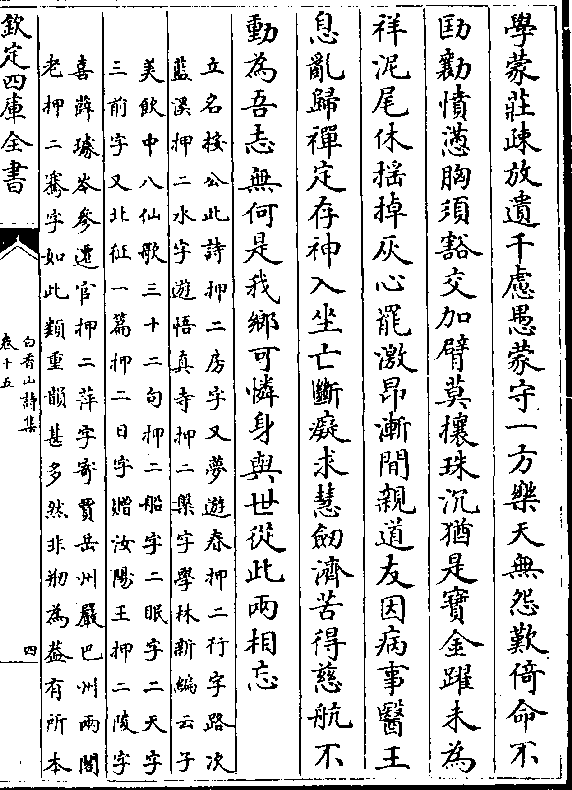 學蒙莊疎放遺千慮愚蒙守一方樂天無怨歎倚命不
劻勷憤懣胸須豁交加臂莫攘珠沉猶是寶金躍未為
祥泥尾休揺掉灰心罷激昂漸閒親道友因病事醫王
息亂歸禪定存神入坐亡斷癡求慧劒濟苦得慈航不
動為吾志無何是我鄉可憐身與世從此兩相忘
立名按公此詩押二房字又夢遊春押二行字路次
藍溪押二水字遊悟真寺押二槃字學林新編云子
美飲中八仙歌三十二句押二船字二眠字二天字
三前字又北征一篇押二日字贈汝陽王押二陵字
喜薛璩岑參遷官押二萍字寄賈岳州嚴巴州兩閣
老押二騫字如此類重韻甚多然非剏為蓋有所本
欽定四庫全書
白香山詩集
卷十五
四